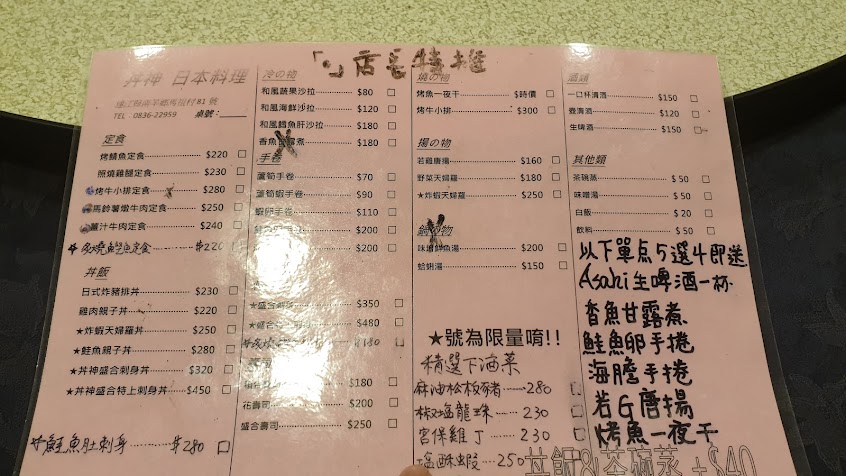 「」店長特推
丼神 日本料理
連江縣南竿鄉馬祖村 81 號
TEL：0836-22959 桌號：
定食
烤鯖魚定食 $220 □
照燒雞腿定食 $230 □
烤牛小排定食 $280 □
馬鈴薯燉牛肉定食 $250 □
薑汁牛肉定食 $240 □
定食 $220
丼飯
日式炸豬排丼 $230 □
雞肉親子丼 $220 □
★炸蝦天婦羅丼 $250 □
★鮭魚親子丼 $280 □
★丼神盛合刺身丼 $320 □
★丼神盛合特上刺身丼 $450 □
鮭魚肚刺身 $280 □
冷の物
和風蔬果沙拉 $80 □
和風海鮮沙拉 $120 □
和風鱈魚肝沙拉 $180 □
香魚甘露煮 $180 □
手卷
蘆筍手卷 $70 □
蘆筍蝦手卷 $90 □
蝦卵手卷 $110 □
$200 □
$200 □
★盛合刺身 $350 □
★盛合特上刺身 $480 □
$180 □
$180 □
花壽司 $200 □
盛合壽司 $250 □
燒の物
烤魚一夜干 $時價 □
烤牛小排 $300 □
揚の物
若雞唐揚 $160 □
野菜天婦羅 $180 □
★炸蝦天婦羅 $250 □
鍋の物
味噌鮮魚湯 $200 □
蛤蜊湯 $150 □
★號為限量唷!!
精選下酒菜
麻油松板豬 280 □
椒塩龍珠 230 □
宮保雞丁 230 □
塩酥蝦 250
酒類
一口杯清酒 $150 □
壺清酒 $120 □
生啤酒 $150 □
其他類
茶碗蒸 $50 □
味噌湯 $50 □
白飯 $20 □
飲料 $50 □
以下單点5選4即送
Asahi生啤酒一杯
香魚甘露煮
鮭魚卵手捲
海膽手捲
若G唐揚
烤魚一夜干
丼飯&茶碗蒸 +$40